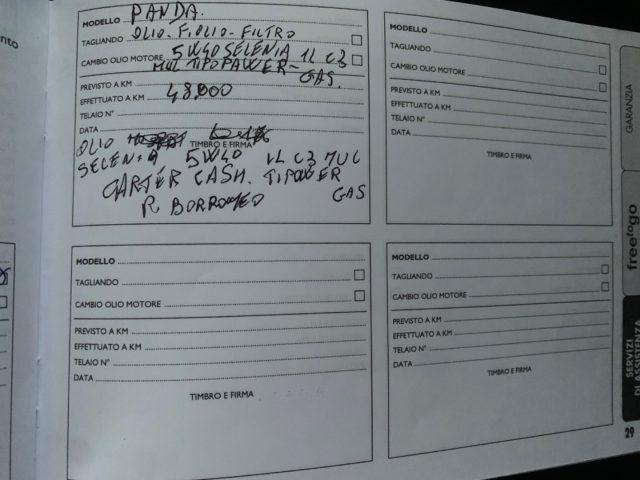 nto
MODELLO PANDA.
TAGLIANDO OLIO - FIOLIO - FILTRO
CAMBIO OLIO MOTORE 5W40 SELENIA 1L C3
MUL TIPOPAWER - GAS.
PREVISTO A KM
EFFETTUATO A KM 48.000
TELAIO N°
DATA
OLIO
TIMBRO E FIRMA
SELENIA 5W40 1L C3 MUL
CARTER CASH. TIPOWER
R BORROMEO GAS
MODELLO
TAGLIANDO
CAMBIO OLIO MOTORE
PREVISTO A KM
EFFETTUATO A KM
TELAIO N°
DATA
TIMBRO E FIRMA
MODELLO
TAGLIANDO
CAMBIO OLIO MOTORE
PREVISTO A KM
EFFETTUATO A KM
TELAIO N°
DATA
TIMBRO E FIRMA
MODELLO
TAGLIANDO
CAMBIO OLIO MOTORE
PREVISTO A KM
EFFETTUATO A KM
TELAIO N°
DATA
TIMBRO E FIRMA
GARANZIA
freetogo
SERVIZI
DI ASSISTENZA
29